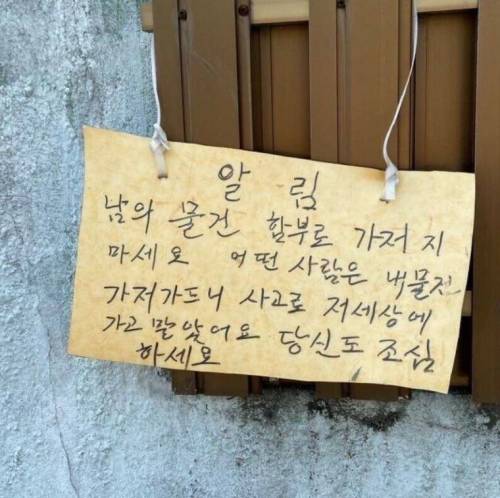 알 림
남의 물건 함부로 가저 지
마세요 어떤 사람은 내물건
가저가드니 사고로 저세상에
가고 말앗어요 당신도 조심
하세요